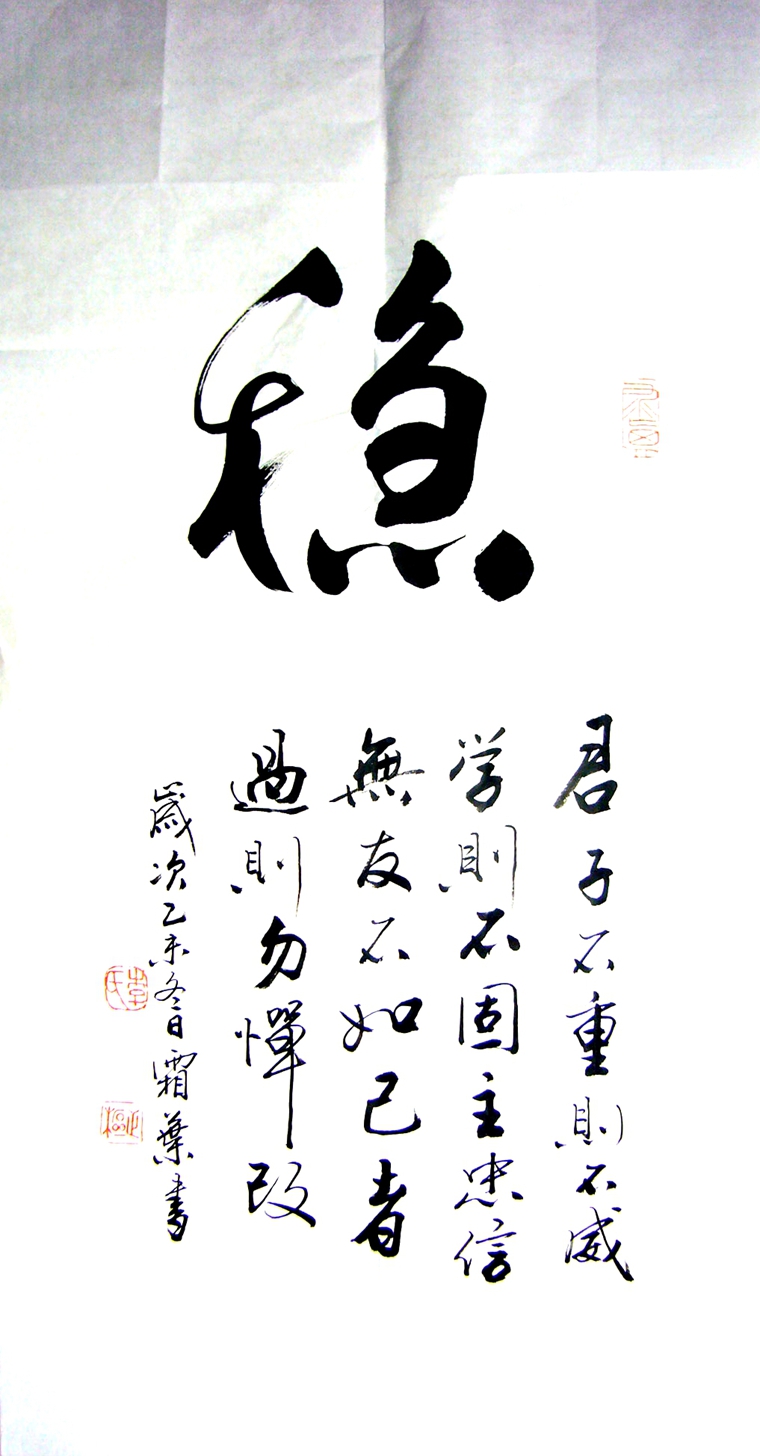 稳
君子不重則不威
学則不固主忠信
無友不如己者
過則勿憚改
歲次乙未冬日霜葉书